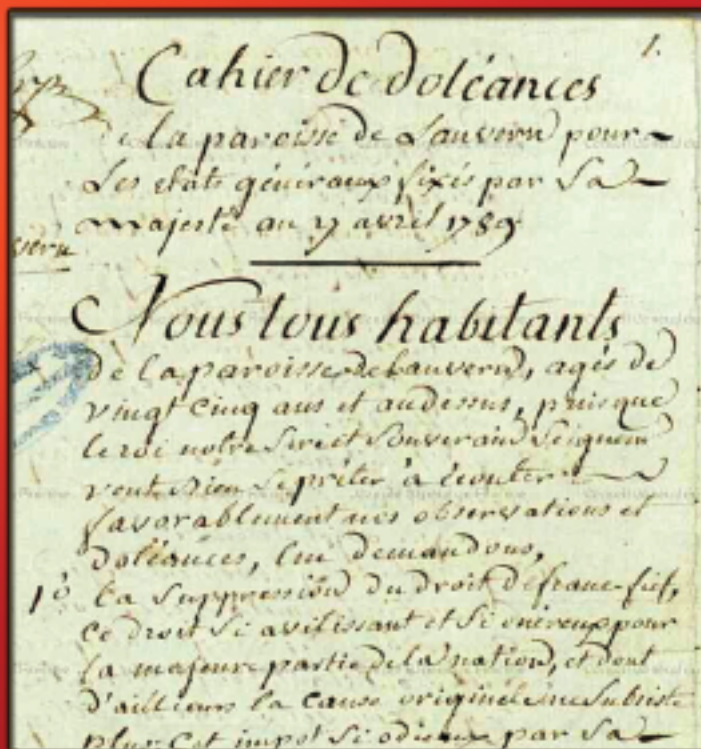 1.
Cahier de doléances
de la paroisse de Lanvern pour
Les etats généraux fixés par Sa
majesté au 27 avril 1789
Nous tous habitants
de la paroisse de Lanvern, agés de
vingt cinq ans et audessus, puisque
le roi notre Sire et Souverain Seigneur
veut Bien Se prêter à écouter
favorablement nos observations et
doléances, lui demandons,
1º La Suppression du droit de franc-fief,
Ce droit Si avilissant et Si onéreux pour
la majeure partie de la nation, et dont
d'ailleurs la Cause originele ne Subsiste
plus Cet impot Si odieux par Sa